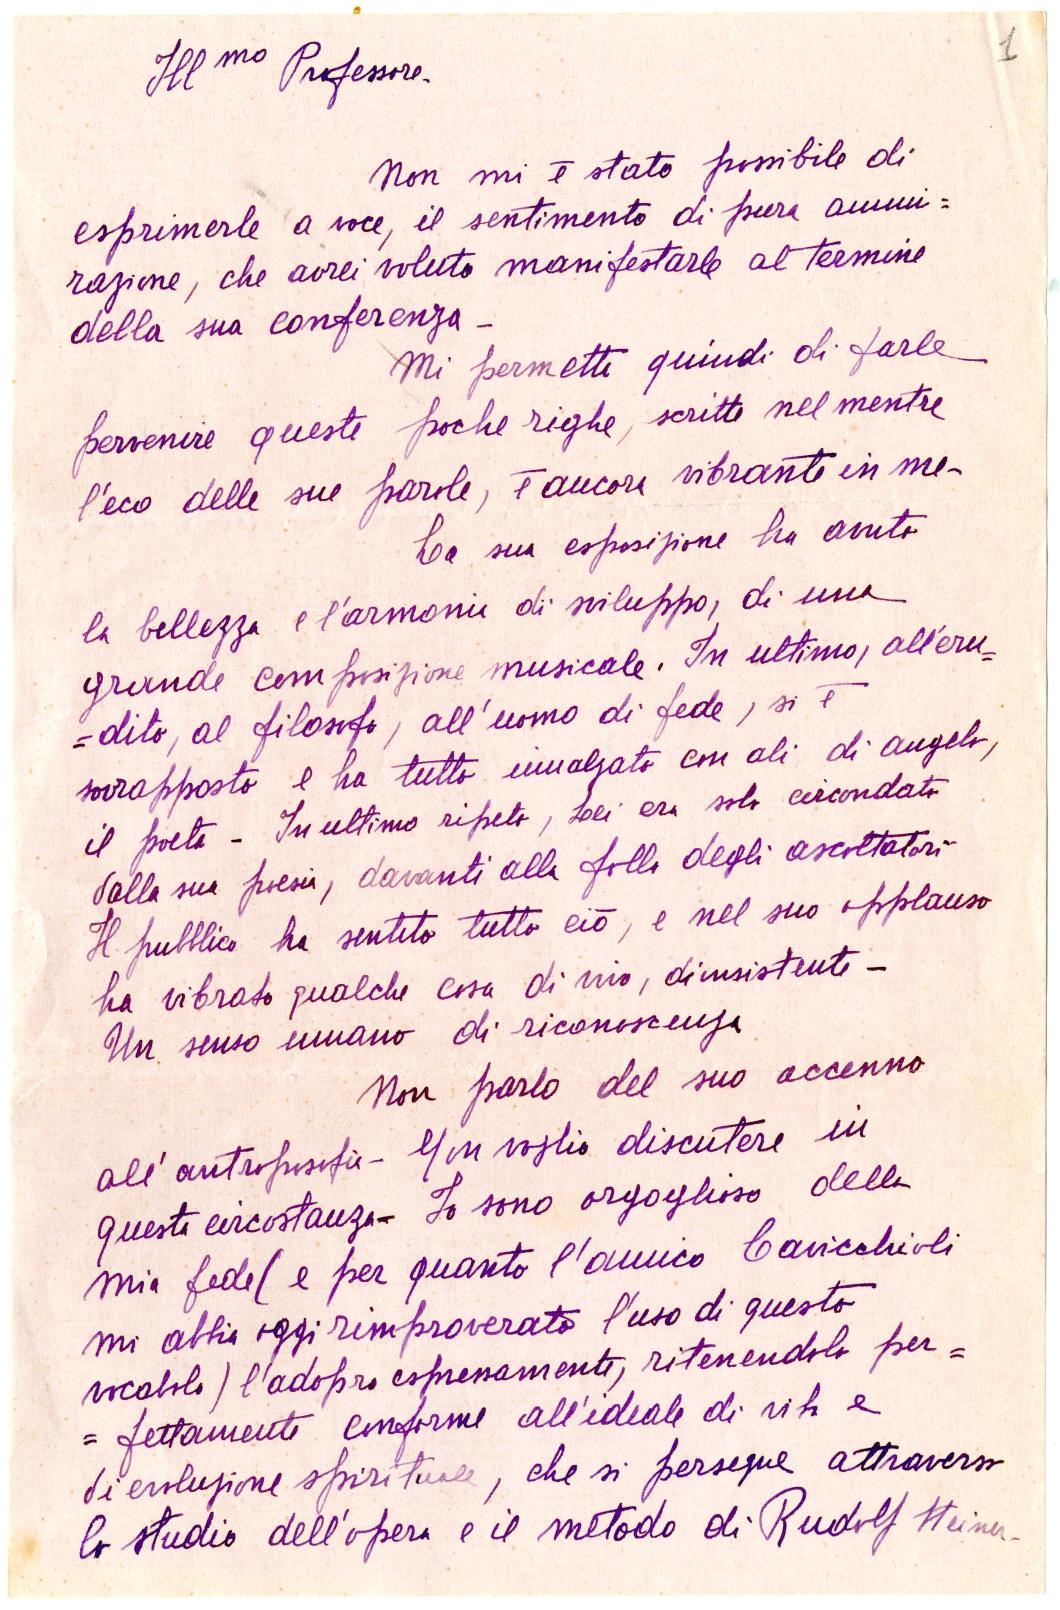 1
Ill mo Professore.
Non mi è stato possibile di
esprimerle a voce, il sentimento di pura ammi=
razione, che avrei voluto manifestarle al termine
della sua conferenza -
Mi permetti quindi di farle
pervenire queste poche righe, scritte nel mentre
l'eco delle sue parole, è ancora vibrante in me -
La sua esposizione ha avuto
la bellezza e l'armonia di sviluppo, di una
grande composizione musicale. In ultimo, all'eru=
=dito, al filosofo, all'uomo di fede, si è
sovrapposto e ha tutto innalzato con ali di angelo,
il poeta - In ultimo ripeto, Lei era solo circondato
dalla sua poesia, davanti alla folla degli ascoltatori
Il pubblico ha sentito tutto ciò, e nel suo applauso
ha vibrato qualche cosa di vivo, d'insistente -
Un senso umano di riconoscenza
Non parlo del suo accenno
all'antroposofia - Non voglio discutere in
questa circostanza - Io sono orgoglioso della
mia fede ( e per quanto l'amico Cavicchioli
mi abbia oggi rimproverato l'uso di questo
vocabolo ) l'adopro espressamente, ritenendolo per=
= fettamente conforme all'ideale di vita e
di evoluzione spirituale, che si persegue attraverso
lo studio dell'opera e il metodo di Rudolf Steiner -